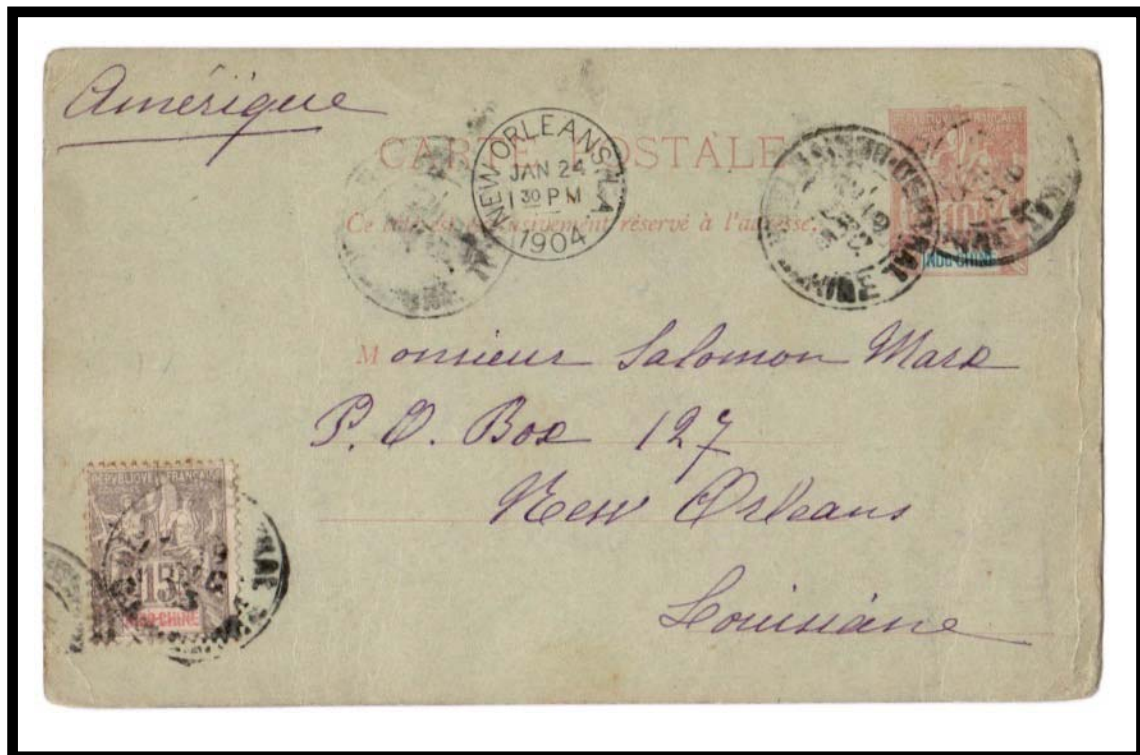 Amérique
CARTE POSTALE
Ce côté est exclusivement réservé à l'adresse.
NEW ORLEANS, LA.
JAN 24
1 30 PM
1904
REPUBLIQUE FRANÇAISE
10
INDO-CHINE
Monsieur Salomon Marx
P. O. Box 127
New Orleans
Louisiane
REPUBLIQUE FRANÇAISE
15
INDO-CHINE